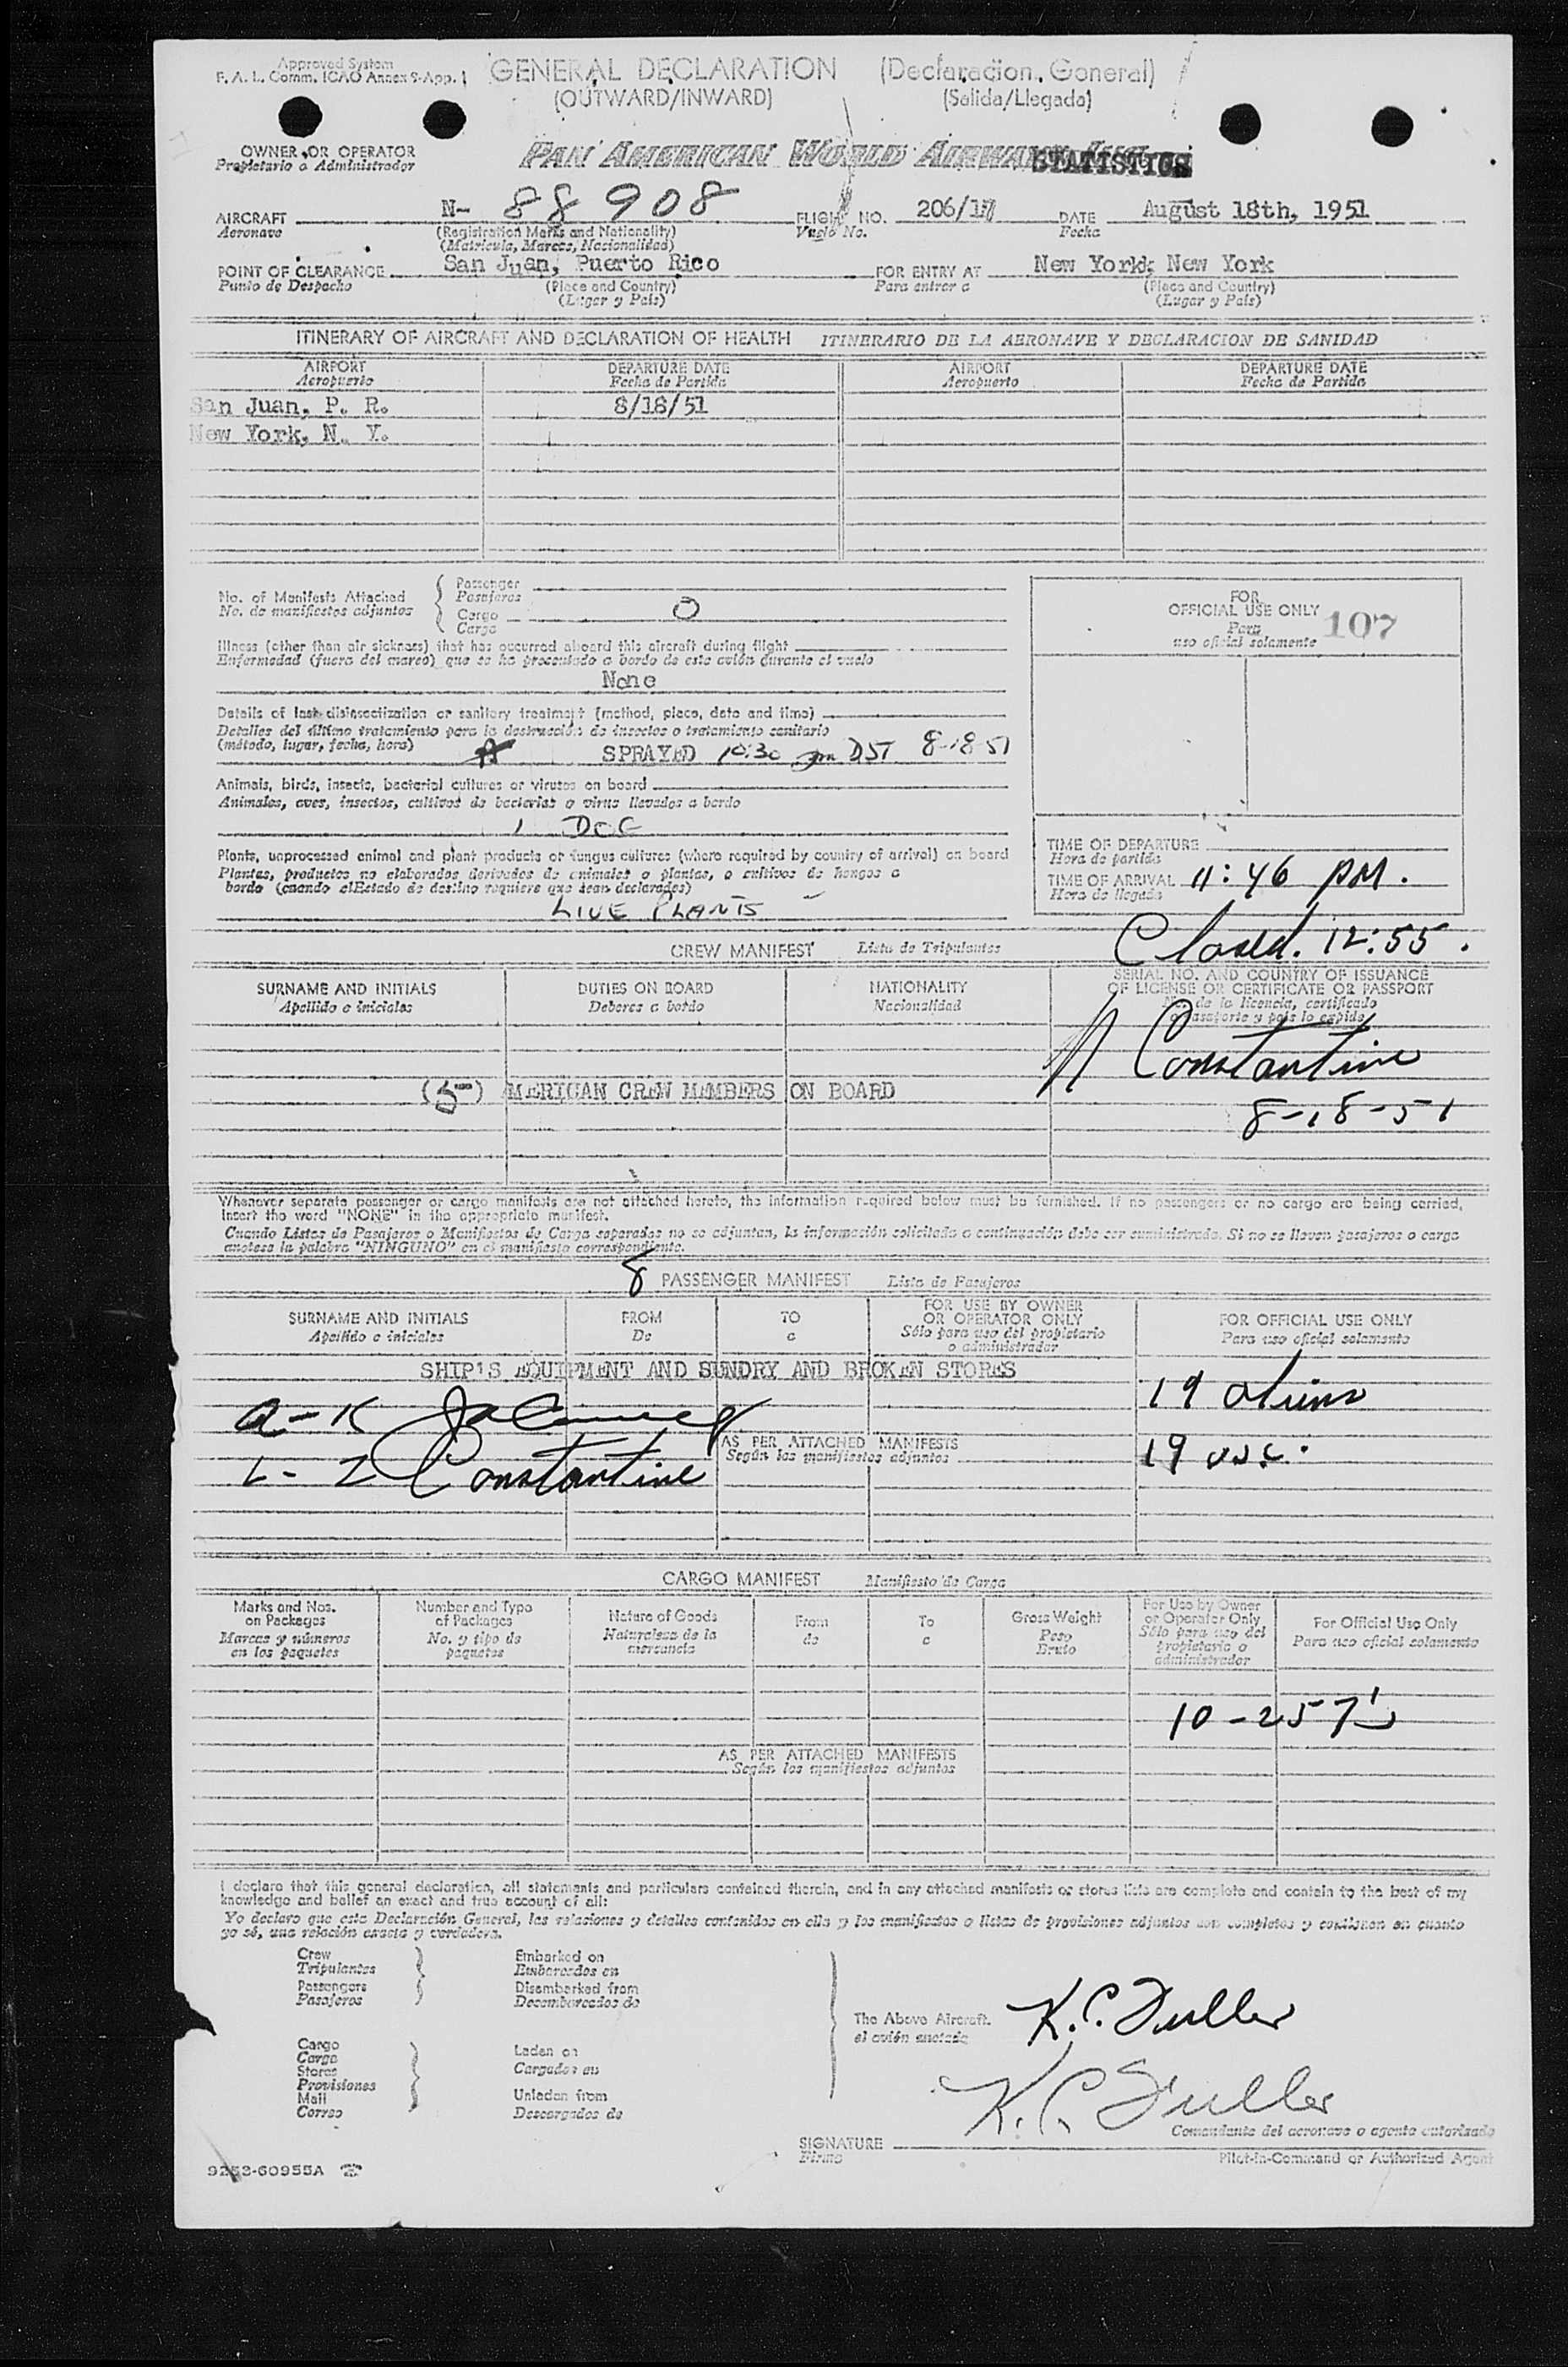 Approved System
F. A. L. Comm. ICAO Annex 9-App. 1
GENERAL DECLARATION (Declaracion General)
(OUTWARD/INWARD) (Salida/Llegada)
OWNER OR OPERATOR
Propietario o Administrador
PAN AMERICAN WORLD AIRWAYS, INC.
STATISTICS
AIRCRAFT N- 88908 FLIGHT NO. 206/17 DATE August 18th, 1951
Aeronave (Registration Marks and Nationality) Vuelo No. Fecha
(Matricula, Marcas, Nacionalidad)
POINT OF CLEARANCE San Juan, Puerto Rico FOR ENTRY AT New York, New York
Punto de Despacho (Place and Country) Para entrar a (Place and Country)
(Lugar y País) (Lugar y País)
ITINERARY OF AIRCRAFT AND DECLARATION OF HEALTH ITINERARIO DE LA AERONAVE Y DECLARACION DE SANIDAD
AIRPORT DEPARTURE DATE AIRPORT DEPARTURE DATE
Aeropuerto Fecha de Partida Aeropuerto Fecha de Partida
San Juan, P. R. 8/18/51
New York, N. Y.
No. of Manifests Attached
No. de manifiestos adjuntos
Passenger
Pasajeros
Cargo 0
Carga
FOR
OFFICIAL USE ONLY
Para
uso oficial solamente
107
Illness (other than air sickness) that has occurred aboard this aircraft during flight
Enfermedad (fuera del mareo) que se ha presentado a bordo de este avión durante el vuelo
None
Details of last disinsectization or sanitary treatment (method, place, date and time)
Detalles del último tratamiento para la destrucción de insectos o tratamiento sanitario
(método, lugar, fecha, hora)
SPRAYED 10:30 pm DST 8-18-51
Animals, birds, insects, bacterial cultures or viruses on board
Animales, aves, insectos, cultivos de bacterias o virus llevados a bordo
1 DOG
Plants, unprocessed animal and plant products or fungus cultures (where required by country of arrival) on board
Plantas, productos no elaborados derivados de animales o plantas, o cultivos de hongos a
bordo (cuando el Estado de destino requiere que sean declarados)
LIVE PLANTS
TIME OF DEPARTURE
Hora de partida
TIME OF ARRIVAL 11:46 PM.
Hora de llegada
Closed. 12:55.
CREW MANIFEST Lista de Tripulantes
SURNAME AND INITIALS DUTIES ON BOARD NATIONALITY SERIAL NO. AND COUNTRY OF ISSUANCE
OF LICENSE OR CERTIFICATE OR PASSPORT
Apellido e iniciales Deberes a bordo Nacionalidad No. de la licencia, certificado
o pasaporte y país lo expide
Constantine
(5) MERICAN CREW MEMBERS ON BOARD
8-18-51
Whenever separate passenger or cargo manifests are not attached hereto, the information required below must be furnished. If no passengers or no cargo are being carried,
insert the word "NONE" in the appropriate manifest.
Cuando Listas de Pasajeros o Manifiestos de Carga separados no se adjuntan, la información solicitada a continuación debe ser suministrada. Si no se llevan pasajeros o carga
anotese la palabra "NINGUNO" en el manifiesto correspondiente.
8 PASSENGER MANIFEST Lista de Pasajeros
SURNAME AND INITIALS FROM TO FOR USE BY OWNER
OR OPERATOR ONLY FOR OFFICIAL USE ONLY
Apellido e iniciales De a Sólo para uso del propietario
o administrador Para uso oficial solamente
SHIP'S EQUIPMENT AND SUNDRY AND BROKEN STORES
19 aliens
A-K
AS PER ATTACHED MANIFESTS
Según los manifiestos adjuntos
19 USC.
L-Z Constantine
CARGO MANIFEST Manifiesto de Carga
Marks and Nos.
on Packages
Marcas y números
en los paquetes
Number and Type
of Packages
No. y tipo de
paquetes
Nature of Goods
Naturaleza de la
mercancía
From
de
To
a
Gross Weight
Peso
Bruto
For Use by Owner
or Operator Only
Sólo para uso del
propietario o
administrador
For Official Use Only
Para uso oficial solamente
10-257
AS PER ATTACHED MANIFESTS
Según los manifiestos adjuntos
I declare that this general declaration, all statements and particulars contained therein, and in any attached manifests or stores lists are complete and contain to the best of my
knowledge and belief an exact and true account of all:
Yo declaro que esta Declaración General, las relaciones y detalles contenidos en ella y los manifiestos o listas de provisiones adjuntos son completos y contienen en cuanto
yo sé, una relación exacta y verdadera.
Crew
Tripulantes
Passengers
Pasajeros
Embarked on
Embarcados en
Disembarked from
Desembarcados de
Cargo
Carga
Stores
Provisiones
Mail
Correo
Laden on
Cargados en
Unladen from
Descargados de
The Above Aircraft.
el avión anotado
K. C. Fuller
K. C. Fuller
Comandante del aeronave o agente autorizado
SIGNATURE
Firma
Pilot-in-Command or Authorized Agent
9252-60955A